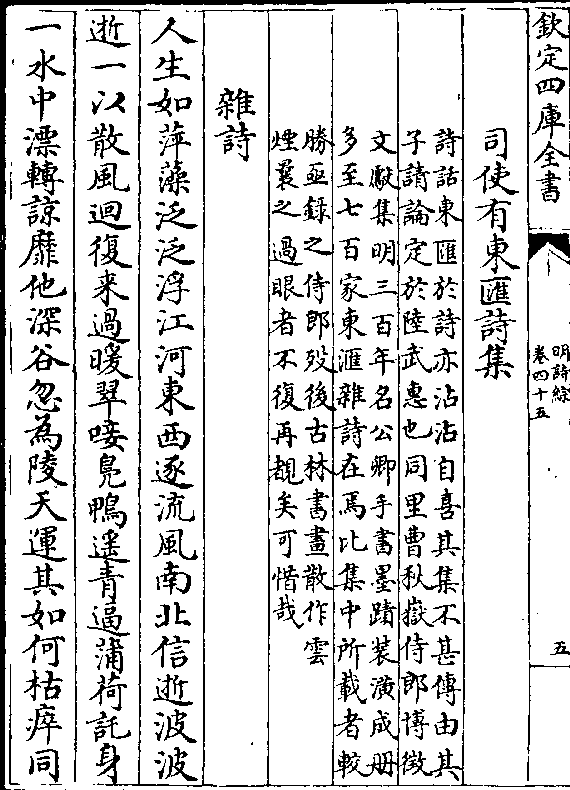 欽定四庫全書
明詩綜
卷四十五
五
司使有東匯詩集
詩話東匯於詩亦沾沾自喜其集不甚傳由其
子請論定於陸武惠也同里曹秋嶽侍郎博徵
文獻集明三百年名公卿手書墨蹟装潢成册
多至七百家東滙雜詩在焉比集中所載者較
勝亟録之侍郎殁後古林書畫散作雲
煙羣之過眼者不復再覩矣可惜哉
雜詩
人生如萍藻泛泛浮江河東西逐流風南北信逝波波
逝一以散風迴復来過暖翠唼鳬鴨遥青逼蒲荷託身
一水中漂轉諒靡他深谷忽為陵天運其如何枯瘁同